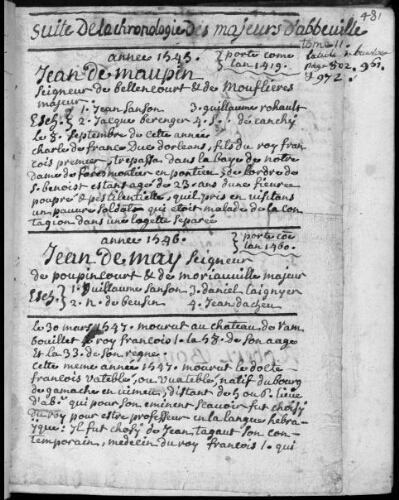 481
suite De la chronologie Des majeurs d'abbeville
tome II.
page 802. 961.
& 972.
annee 1545. porte come lan 1419.
Jean de maupin
Seigneur de bellencourt & de Mouflieres
majeur
Esch. 1. Jean Sanson 3. guillaume rohault
2. Jacque berenger 4. S. de canchy
le 8. Septembre de cette année
charle de france Duc dorleans, fils du roy fran
çois premier, trepassa dans la baye de notre
dame de foremontier en pontieu de lordre de
s. benoist estant agé de 23. ans dune fieure
poupre & pestilentielle, quil pris en visitans
un pauure soldats qui etoit malade de la con
tagion dans une logette separée
annee 1546. porte coe lan 1460.
Jean de may seigneur
de poupincourt & de moriauville majeur
Esch. 1. Guillaume Sanson 3. daniel laignyer
2. n. de beusin 4. Jean dacheu
le 30 mars 1547. mourut au chateau de ram
bouillet le roy francois 1. la 58. de son aage
Et la 33. de son regne.
Cette meme année 1547. mourut le docte
francois vateble, ou vuateble, natif du bourg
de gamache en vimeu, distant de 5 ou 6. lieue
d'ab. qui pour son eminent scauoir fut choisy
du roy pour estre professeur en la langue hebra
yque: Il fut choisy de Jean tagaut son con-
temporain, medecin du roy francois 1. qui